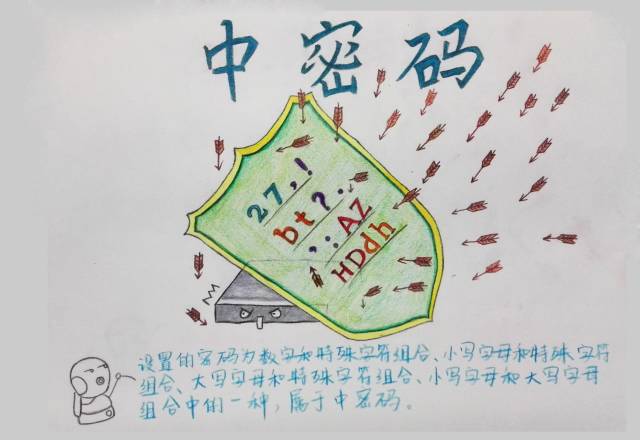 中密码
27,!
bt?.
,:AZ
HDdh
设置的密码为数字和特殊字符组合、小写字母和特殊字符
组合、大写字母和特殊字符组合、小写字母和大写字母
组合中的一种，属于中密码。